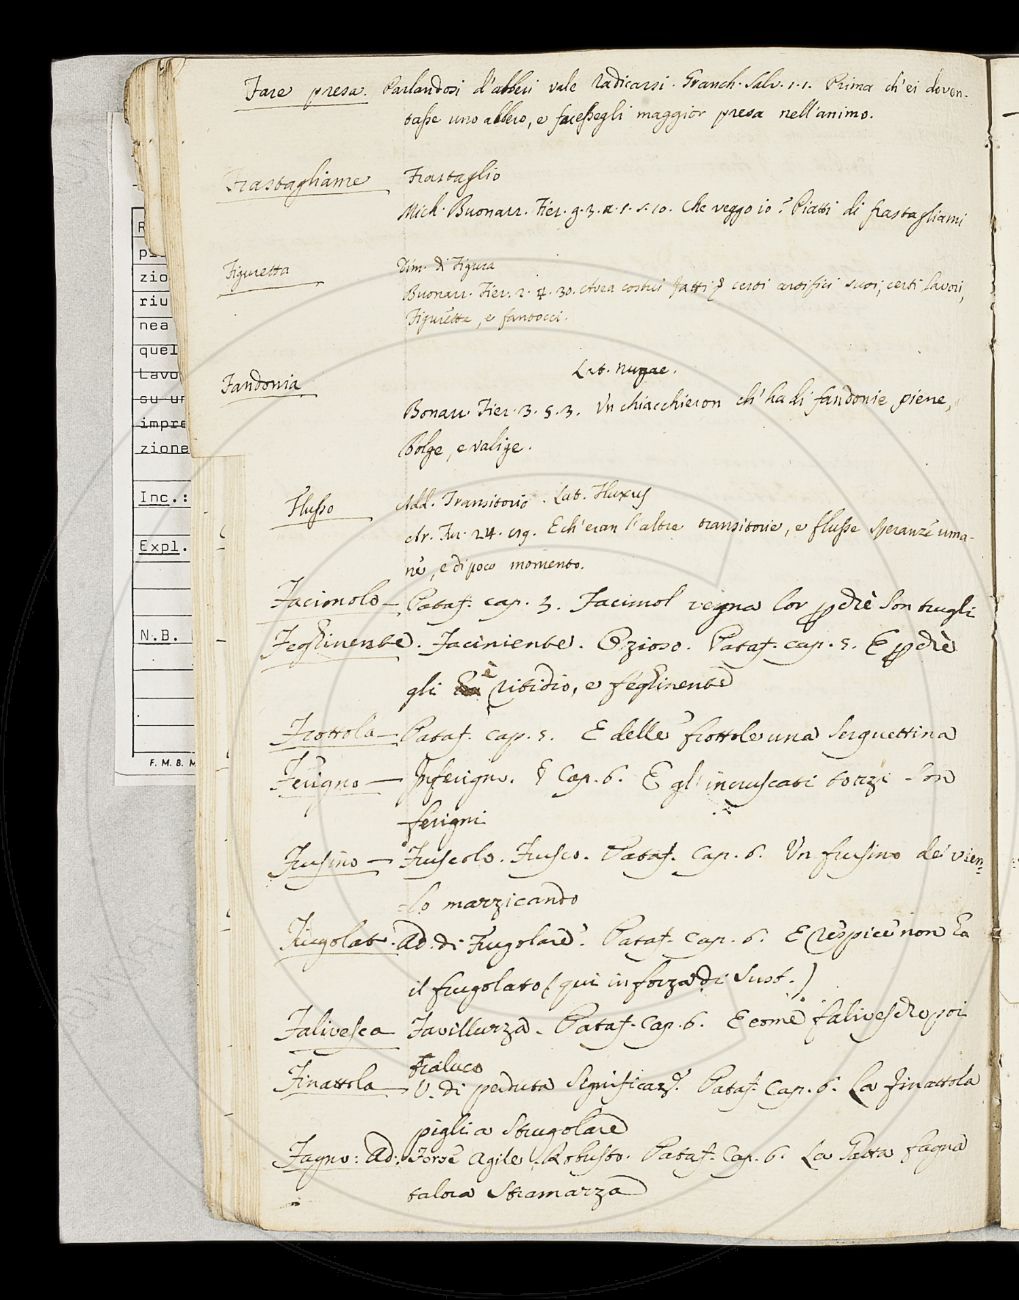 Fare presa. Parlandosi d'alberi vale radicarsi. Granch. Salv. 1.1. Prima ch'ei doven-
tasse uno albero, e facessegli maggior presa nell'animo.
Frastagliame Frastaglio
Mich. Buonarr. Fier. g. 3. a. 1. s. 10. Che veggo io? Piatti di frastagliami
Figuretta Dim. di Figura
Buonarr. Fier. 2. 4. 30. Avea costui fatti certi artifici suoi, certi lavori,
Figurette, e fantocci.
Lat. nugae.
Fandonia
Bonarr. Fier. 3. 5. 3. Un chiacchieron ch'ha di fandonie piene,
Bolge, e valige.
Flusso Add. Transitorio. Lat. Fluxus
Ar. Fur. 24. Ech'eran l'altre transitorie, e flusse speranze uma-
ne, e di poco momento.
Facimolo — Pataf. cap. 3. Facimol regna lor son trugli
Faciniente. Ozioso. Pataf. cap. 5. E
gli è ritidio, e
Frottola — Pataf. cap. 5. E delle frottole una serquettina
Ferigno — Inferigno. Cap. 6. E gl'incruscati torzi son
ferigni
Frusino — Fruscolo. Frusco. Pataf. Cap. 6. Un frusino de' vien-
lo marzicando
Frugolato. Ad. di Frugolare. Pataf. Cap. 6. E respice non ha
il frugolato (qui in forza di Sust.)
Falivesca Favilluzza. Pataf. Cap. 6. E come falivesche poi
traluco
Finattola — V. di perduta Significaz. Pataf. Cap. 6. La finattola
piglia strugolare
Fagno: Ad: Forse Agile, Robusto. Pataf. Cap. 6. La Gatta fagna
talora stramazza
pi
zio
riu
nea
quel
Lavo
su un
impre
zione
Inc.:
Expl.
N.B.
F. M. B. M